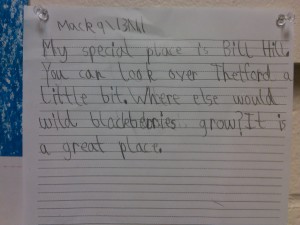 Mack 9\13\11
My special place is Bill Hill.
You can look over Thetford a
little bit. Where else would
wild blackberries grow? It is
a great place.